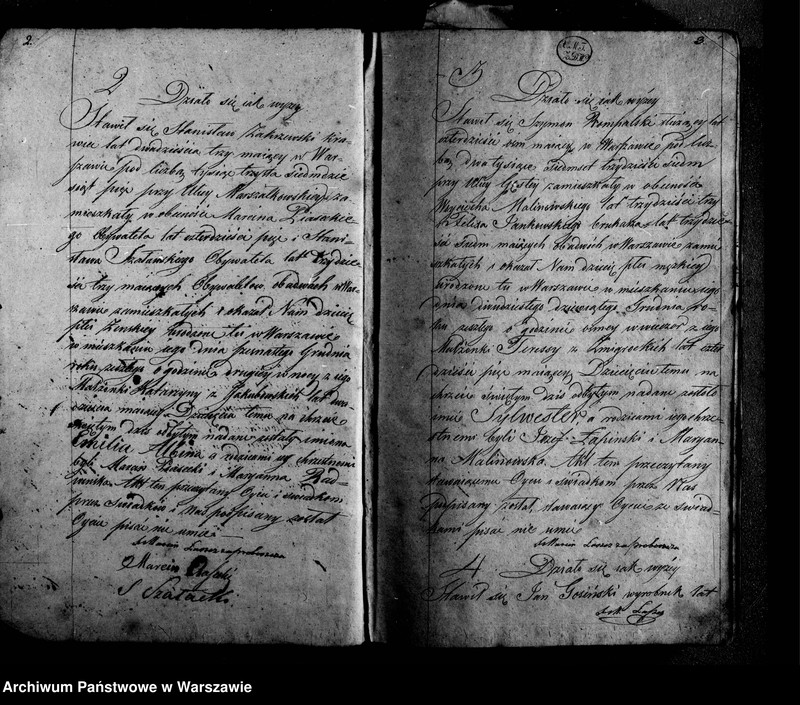 2.
2 Działo się iak wyzy
Stawił się Stanisław Zakrzewski kra-
wiec lat dwadzieścia trzy maiący w War-
szawie pod liczbą tysiąc trzysta siedmdzie-
siąt pięć przy Ulicy Marszałkowskiey za-
mieszkały w obecności Marcina Piaseckie-
go Obywatela lat czterdzieści pięć i Stani-
sława Obywatela lat trzydzie-
ści trzy maiących Obywatelów obudwóch w War-
szawie zamieszkałych i okazał Nam dziecię
płci Zenskiey urodzone tu w Warszawie
w mieszkaniu iego dnia Grudnia
roku zeszłego o godzinie drugiey w nocy z iego
Małżonki Katarzyny z Jakubowskich lat dwa-
dzieścia maiącey Dziecięciu temu na chrzcie
świętym dziś odbytym nadane zostały imiona
Emilia Albina a rodzicami iey chrzestnemi
byli Marcin Piasecki i Maryanna
Akt ten przeczytany Oycu i świadkom
przez świadków i Nas podpisany został
Oyciec pisać nie umie
Marcin Piasecki
S
3
3 Działo się iak wyzy
Stawił się Szymon Rempalski służący lat
czterdzieści ośm maiący w Warszawie pod licz-
bą dwa tysiące siedmset trzydzieści siedm
przy Ulicy Gęstey zamieszkały w obecności
Woyciecha Malinowskiego lat trzydzieści trzy
Felixa Jankowskiego brukarza lat trzydzie-
ści siedm maiących obudwóch w Warszawie zamie-
szkałych i okazał Nam dziecię płci męzkiey
urodzone tu w Warszawie w mieszkaniu iego
dnia dwudziestego dziewiątego Grudnia ro-
ku zeszłego o godzinie osmey wieczór z iego
Małżonki Teressy z Zmigrockich lat czter-
dzieści pięć maiącey Dziecięciu temu na
chrzcie świętym dziś odbytym nadane zostało
imie Sylwester, a rodzicami iego chrze-
stnemi byli Józef Łapinski i Maryan-
na Malinowska. Akt ten przeczytany
stawaiącemu Oycu i świadkom przez Nas
podpisany został stawaiący Oyciec ze świad-
kami pisać nie umie
4. Działo się iak wyzy
Stawił się Jan Gosiński wyrobnik lat
Archiwum Państwowe w Warszawie